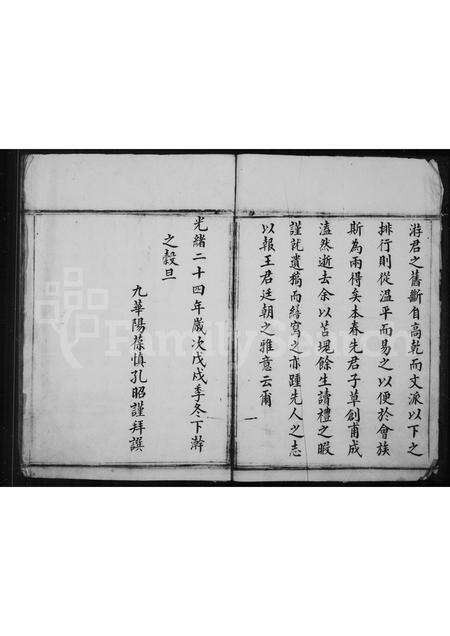 游君之舊斷自高乾而文派以下之
排行則從溫平而易之以便於會族
斯為兩得矣本春先君子草創甫成
溘然逝去余以苫塊餘生讀禮之暇
謹就遺稿而繕寫之亦踵先人之志
以報王君廷朝之雅意云爾
一
光緒二十四年歲次戊戌季冬下澣
之穀旦
九華陽葆慎孔昭謹拜譔
FamilySearch